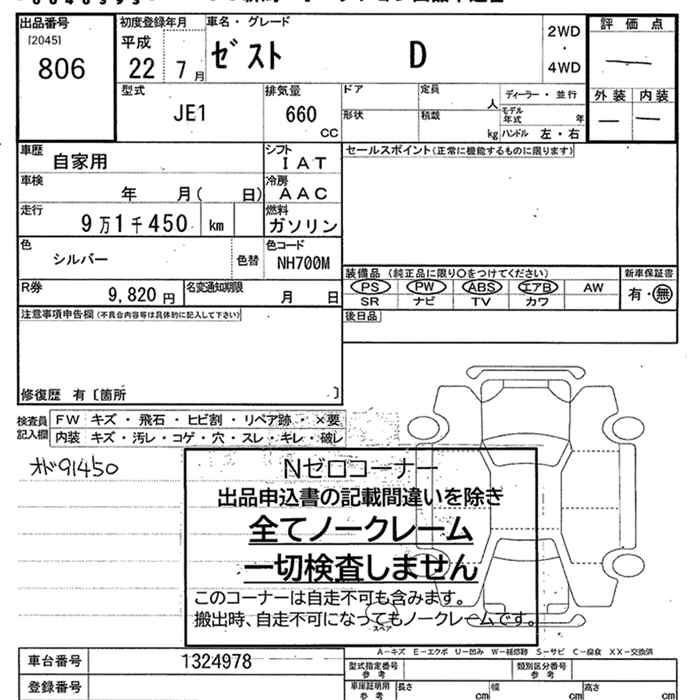 出品番号 初度登録年月 車名・グレード 2WD ・ 4WD 評価点
[2045] 806 平成 22 7月 ゼスト D
型式 排気量 ドア 定員 人 ディーラー・並行 外装 内装
JE1 660 CC 形状 積載 kg モデル年式 年 — —
ハンドル 左・右
車歴 自家用 シフト IAT セールスポイント(正常に機能するものに限ります)
車検 年 月( 日) 冷房 AAC
走行 9万1千450 km 燃料 ガソリン
色 シルバー 色替 色コード NH700M
装備品 (純正品に限り○をつけてください) 新車保証書
R券 9,820円 名変通知期限 月 日 PS PW ABS エアB AW 有・無
SR ナビ TV カワ
注意事項申告欄(不具合内容等は具体的に記入して下さい) 後日品
修復歴 有〔箇所 〕
検査員記入欄 FW キズ・飛石・ヒビ割・リペア跡・×要
内装 キズ・汚レ・コゲ・穴・スレ・キレ・破レ
91450
Nゼロコーナー
出品申込書の記載間違いを除き
全てノークレーム
一切検査しません
このコーナーは自走不可も含みます。
搬出時、自走不可になってもノークレームです。
スペア
A-キズ E-エクボ U-凹み W-補修跡 S-サビ C-腐食 XX-交換済
車台番号 1324978 型式指定番号 参考 類別区分番号 参考
登録番号 車庫証明用 参考 長さ cm 幅 cm 高さ cm